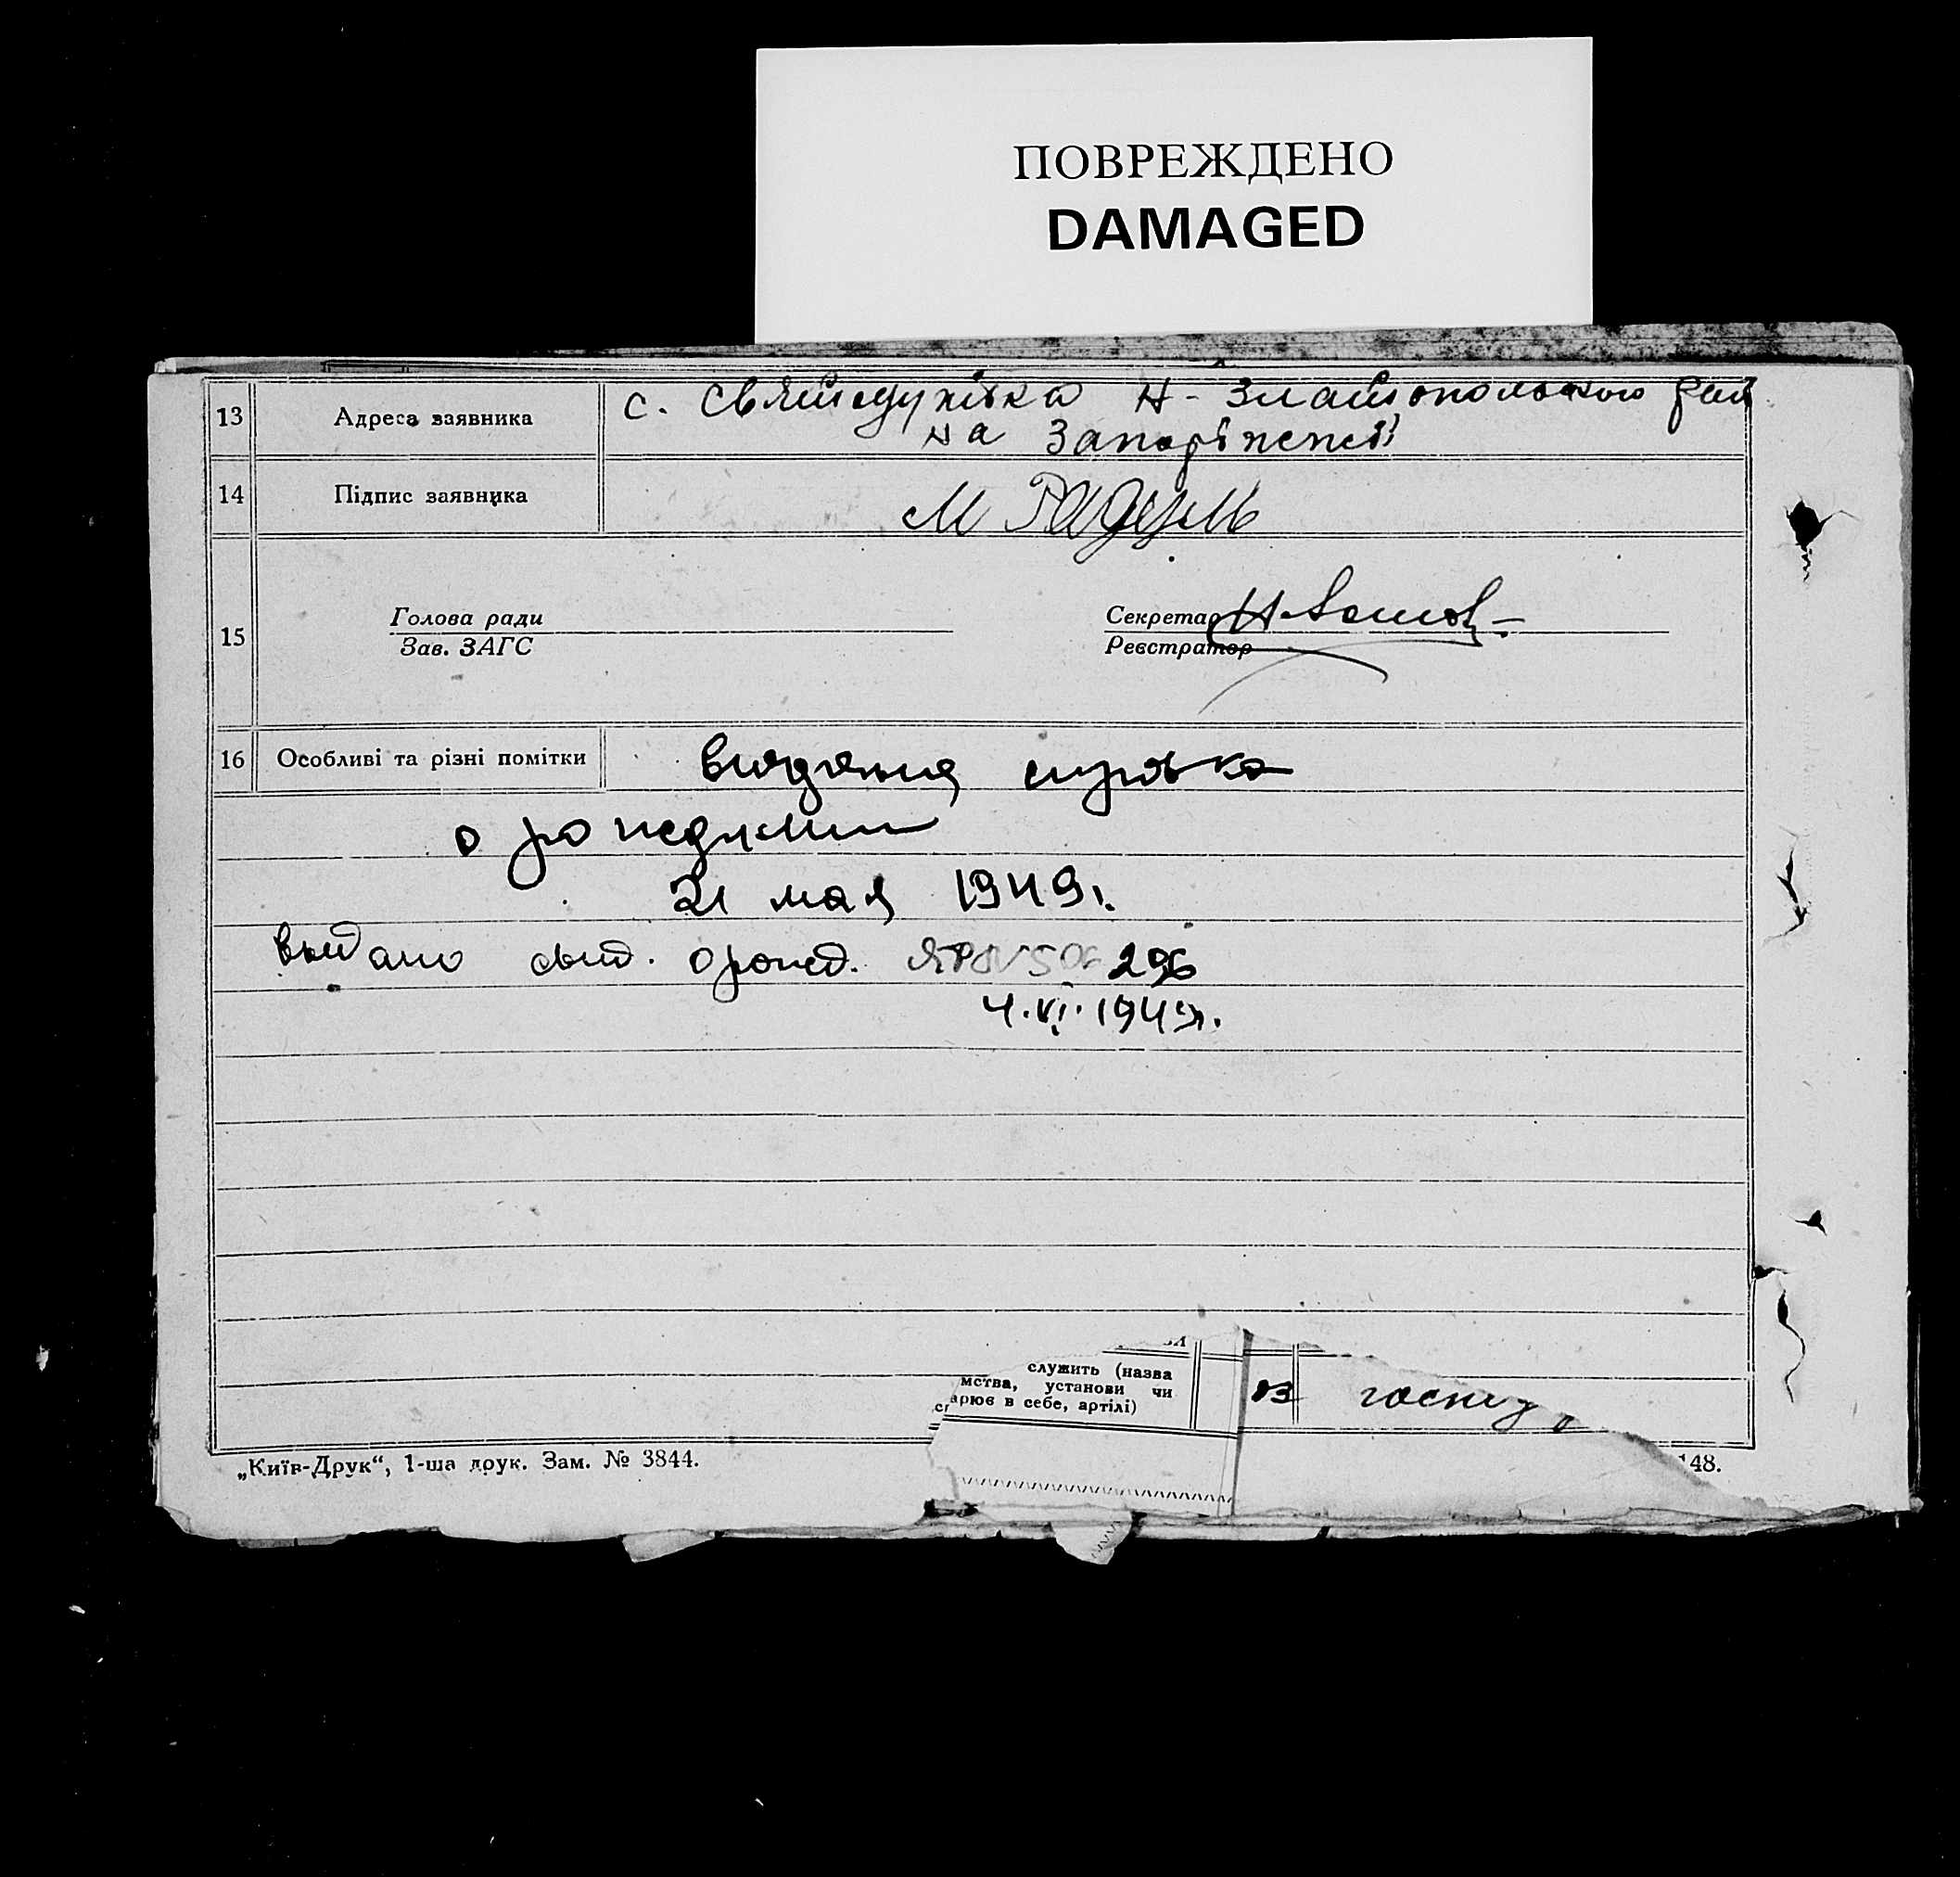 ПОВРЕЖДЕНО
DAMAGED
13 Адреса заявника с. Святодухівка Н-Златопольського рай
на Запоріжжі
14 Підпис заявника М
15 Голова ради Секретар
Зав. ЗАГС Реєстратор
16 Особливі та різні помітки виданна справка
о рождении
21 мая 1949г.
выдано свид. о рожд. 296
4.VI.1949г.
служить (назва
мства, установи чи
арює в себе, артілі)
„Київ-Друк“, 1-ша друк. Зам. № 3844.
48.